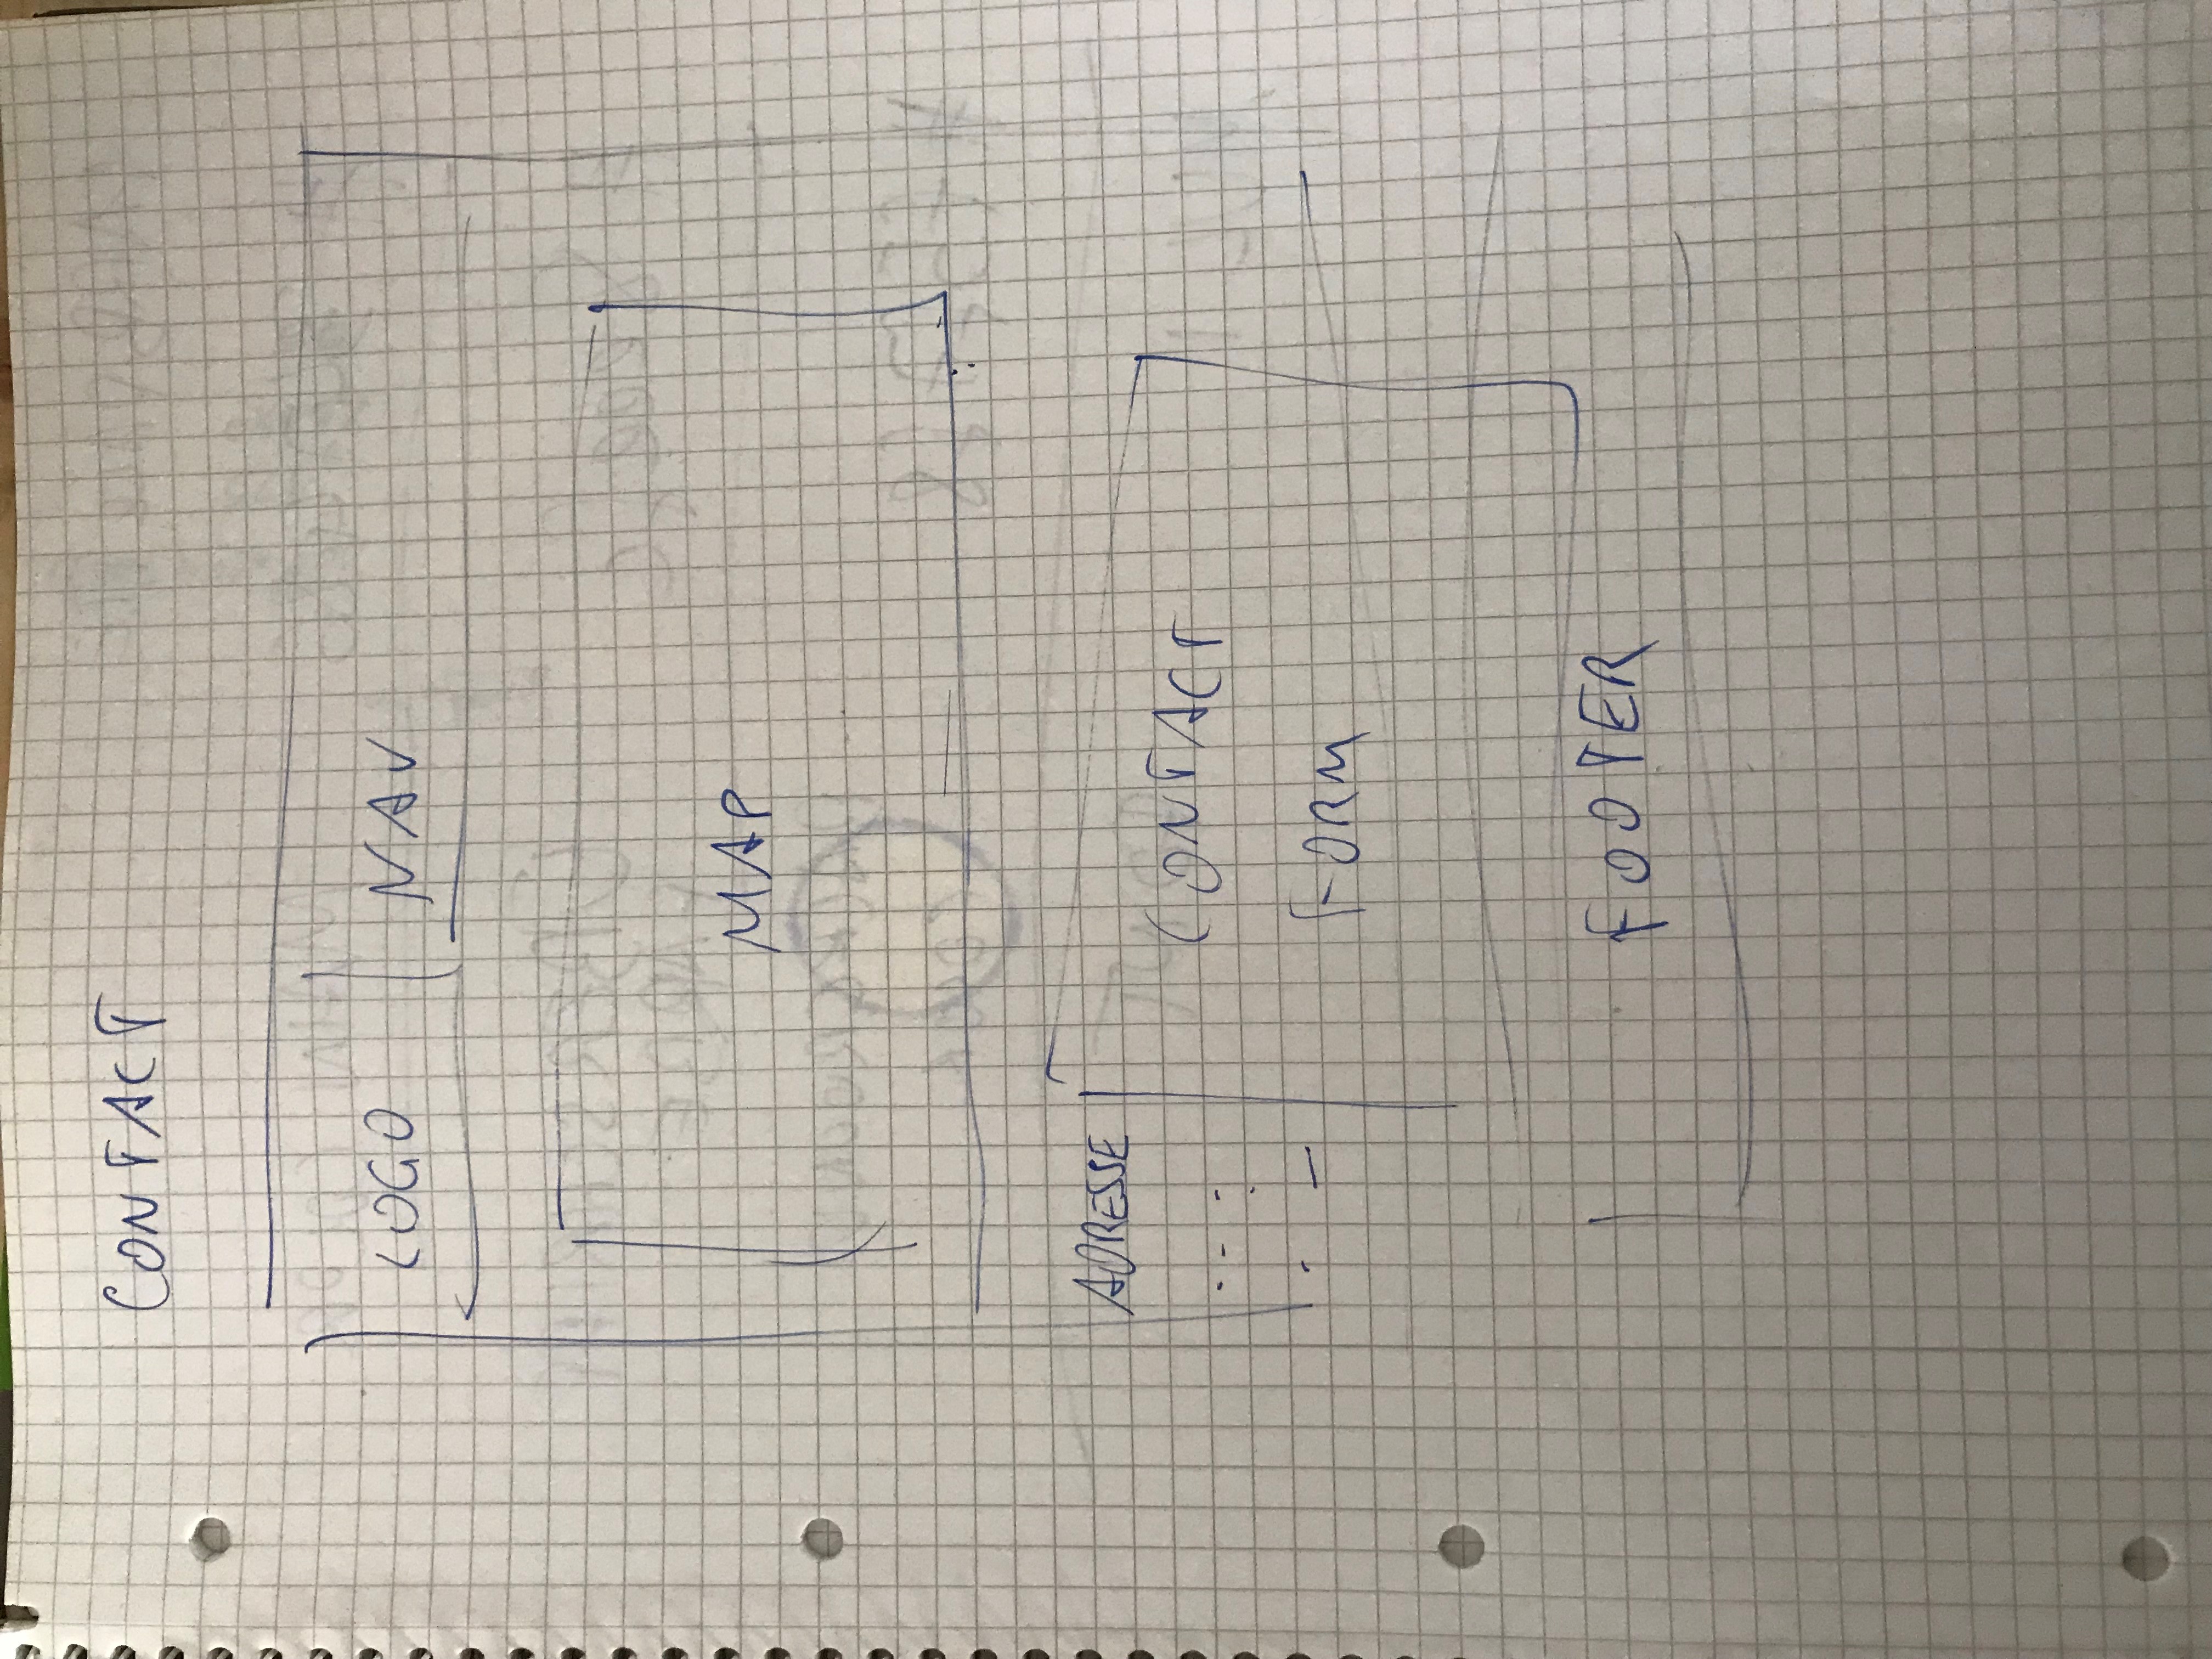 CONTACT
LOGO NAV
MAP
ADRESSE
CONTACT
FORM
FOOTER